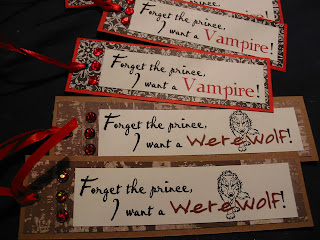 Forget the prince,
I want a Vampire!
Forget the prince,
I want a Vampire!
Forget the prince,
I want a Vampire!
Forget the prince,
I want a Werewolf!
Forget the prince,
I want a Werewolf!